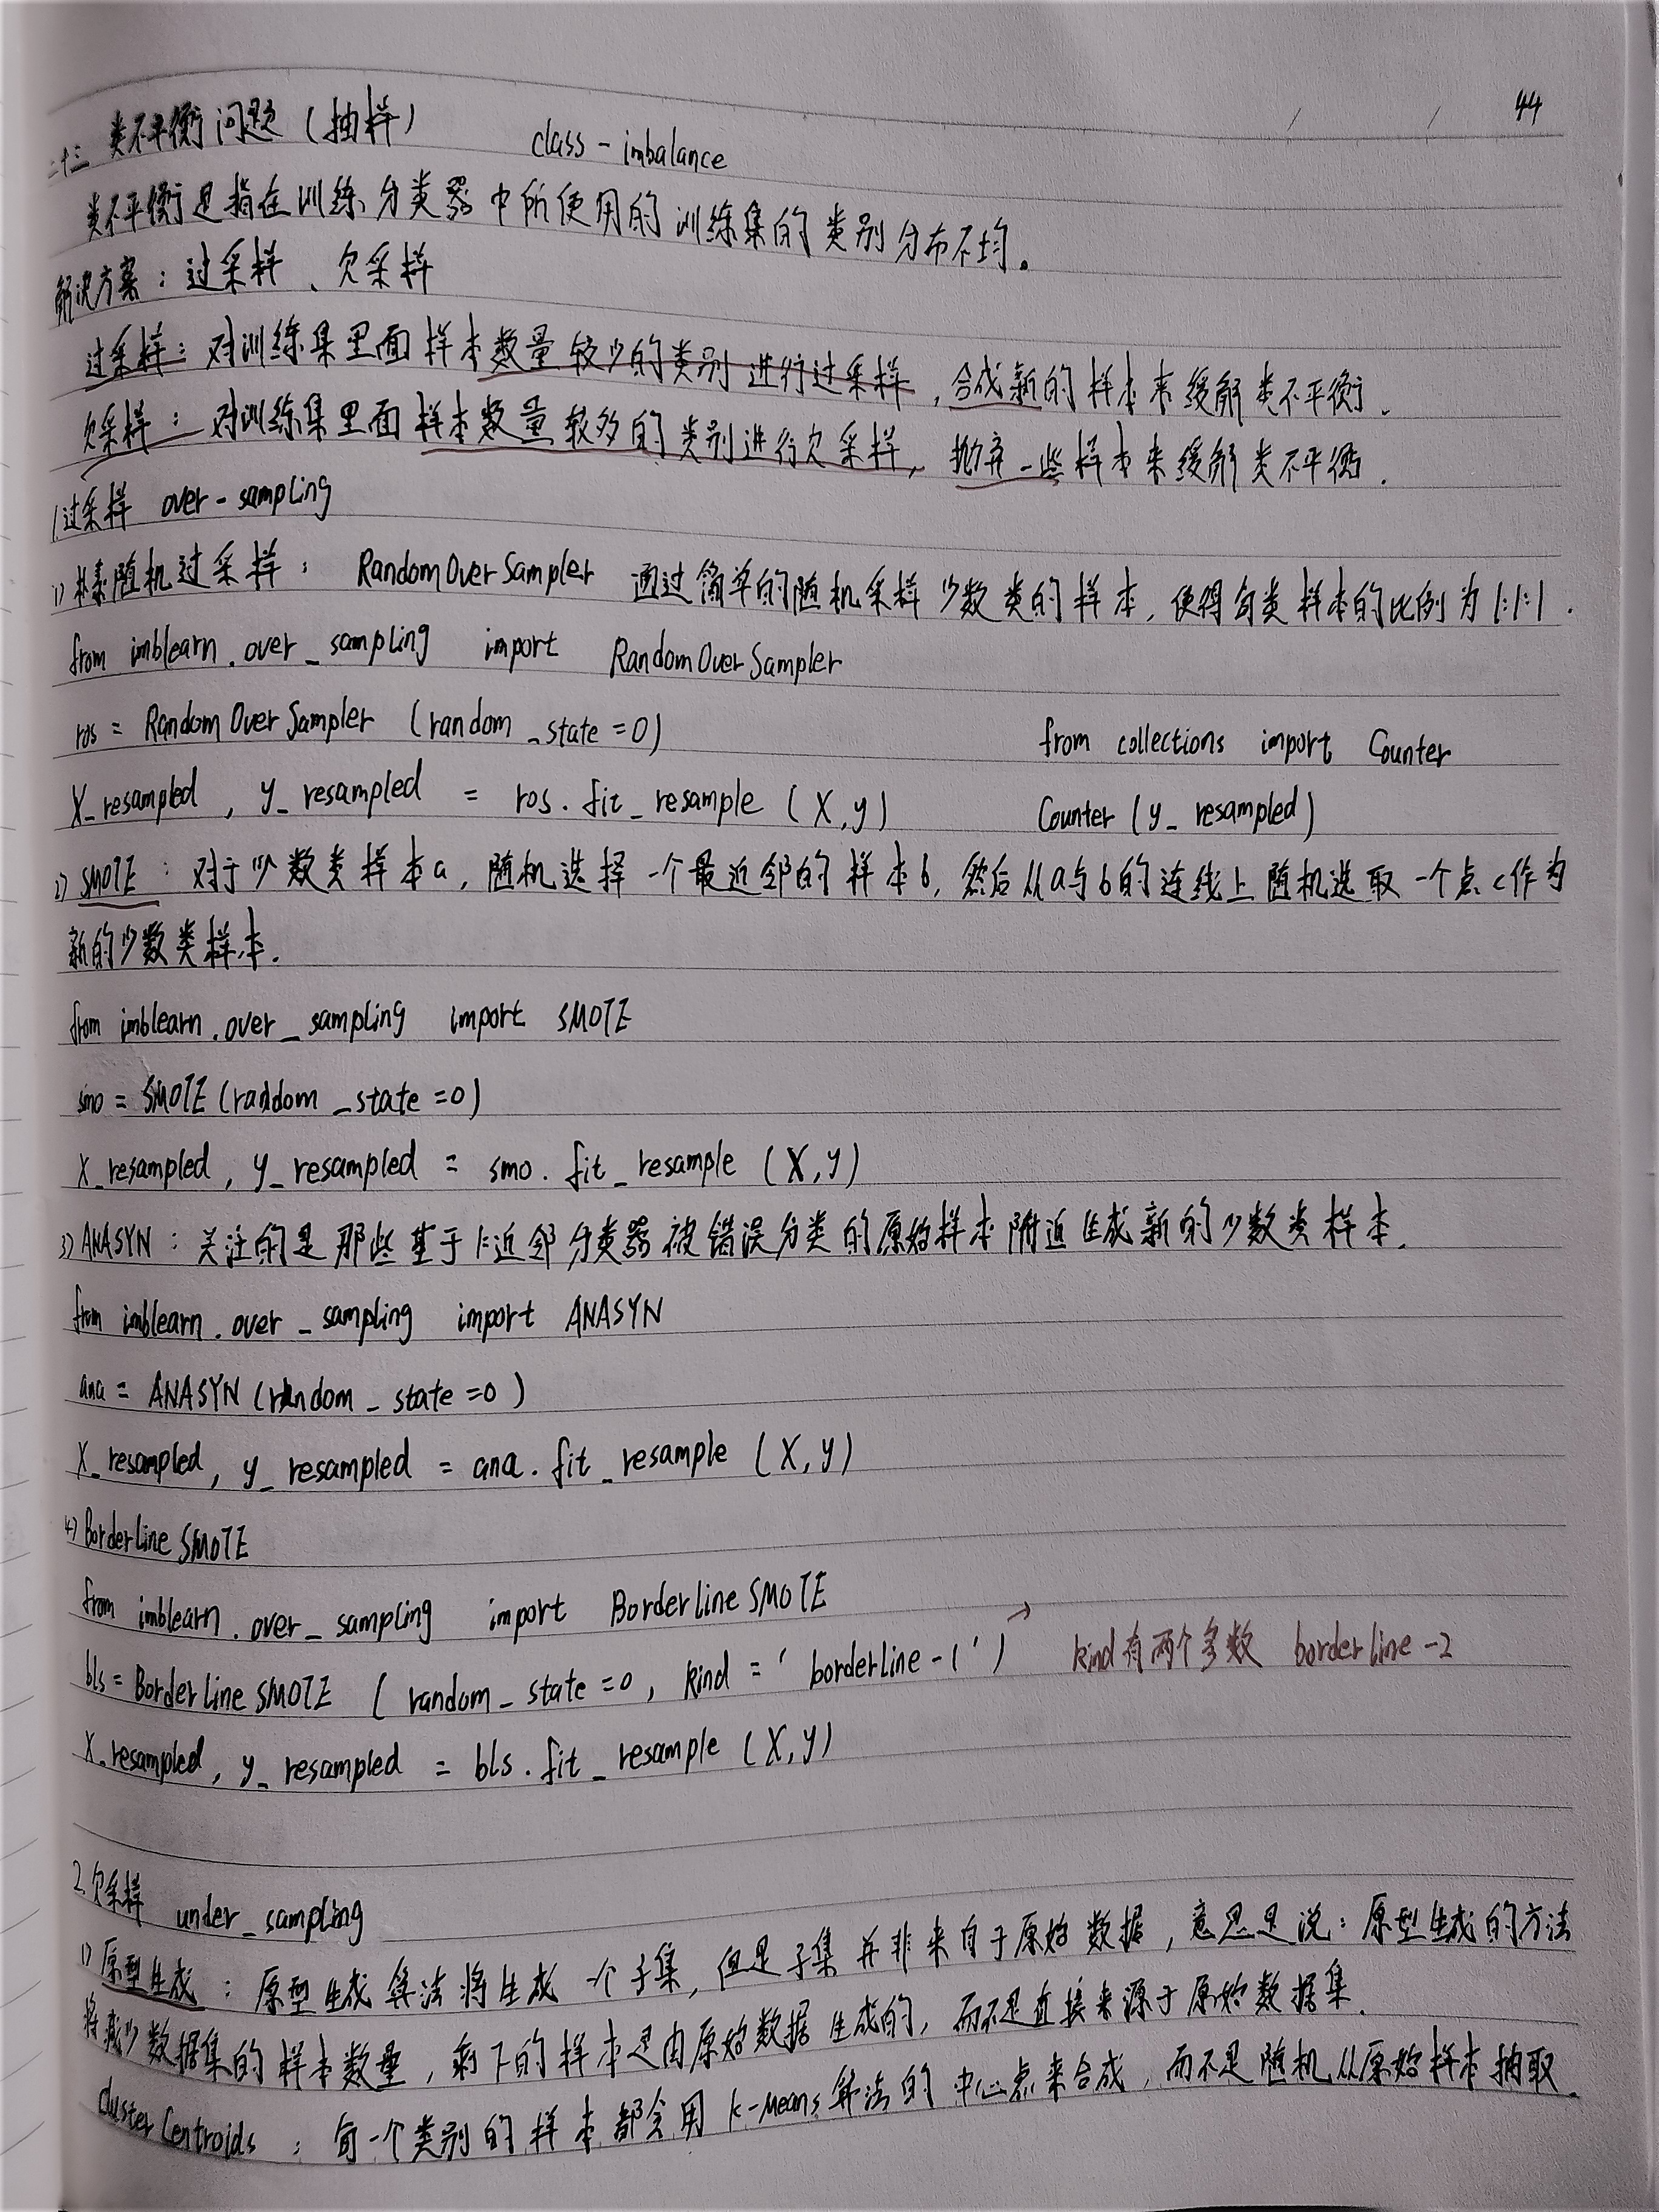 44
二十三 类不平衡问题（抽样） class-imbalance
类不平衡是指在训练分类器中所使用的训练集的类别分布不均。
解决方案：过采样、欠采样
过采样：对训练集里面样本数量较少的类别进行过采样，合成新的样本来缓解类不平衡.
欠采样：对训练集里面样本数量较多的类别进行欠采样，抛弃一些样本来缓解类不平衡.
1.过采样 over-sampling
1) 朴素随机过采样： RandomOverSampler 通过简单的随机采样少数类的样本，使得每类样本的比例为1:1:1.
from imblearn.over_sampling import RandomOverSampler
ros = RandomOverSampler (random_state=0) from collections import Counter
X_resampled, y_resampled = ros.fit_resample (X,y) Counter(y_resampled)
2) SMOTE：对于少数类样本a，随机选择一个最近邻的样本b，然后从a与b的连线上随机选取一个点c作为
新的少数类样本.
from imblearn.over_sampling import SMOTE
smo = SMOTE(random_state=0)
X_resampled, y_resampled = smo.fit_resample (X,y)
3) ANASYN：关注的是那些基于k近邻分类器被错误分类的原始样本附近生成新的少数类样本.
from imblearn.over_sampling import ANASYN
ana = ANASYN(random_state=0)
X_resampled, y_resampled = ana.fit_resample (X,y)
4) BorderLineSMOTE
from imblearn.over_sampling import BorderlineSMOTE
bls = BorderLineSMOTE (random_state=0, kind='borderline-1') → kind有两个多数 borderline-2
X_resampled, y_resampled = bls.fit_resample (X,y)
2.欠采样 under_sampling
1) 原型生成：原型生成算法将生成一个子集，但是子集并非来自于原始数据，意思是说：原型生成的方法
将减少数据集的样本数量，剩下的样本是由原始数据生成的，而不是直接来源于原始数据集.
ClusterCentroids：每一个类别的样本都会用k-Means算法的中心点来合成，而不是随机从原始样本抽取.